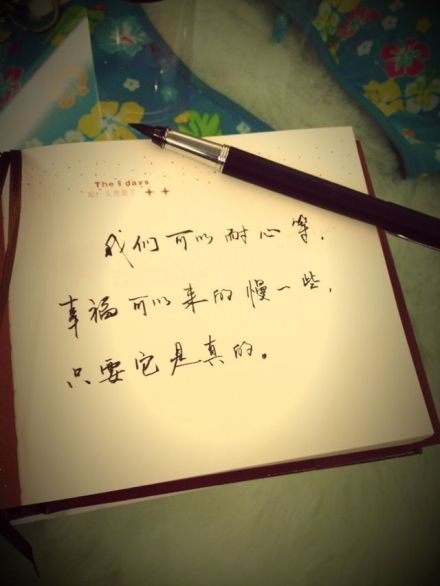 The 6 days
我们可以耐心等,
幸福可以来的慢一些,
只要它是真的。